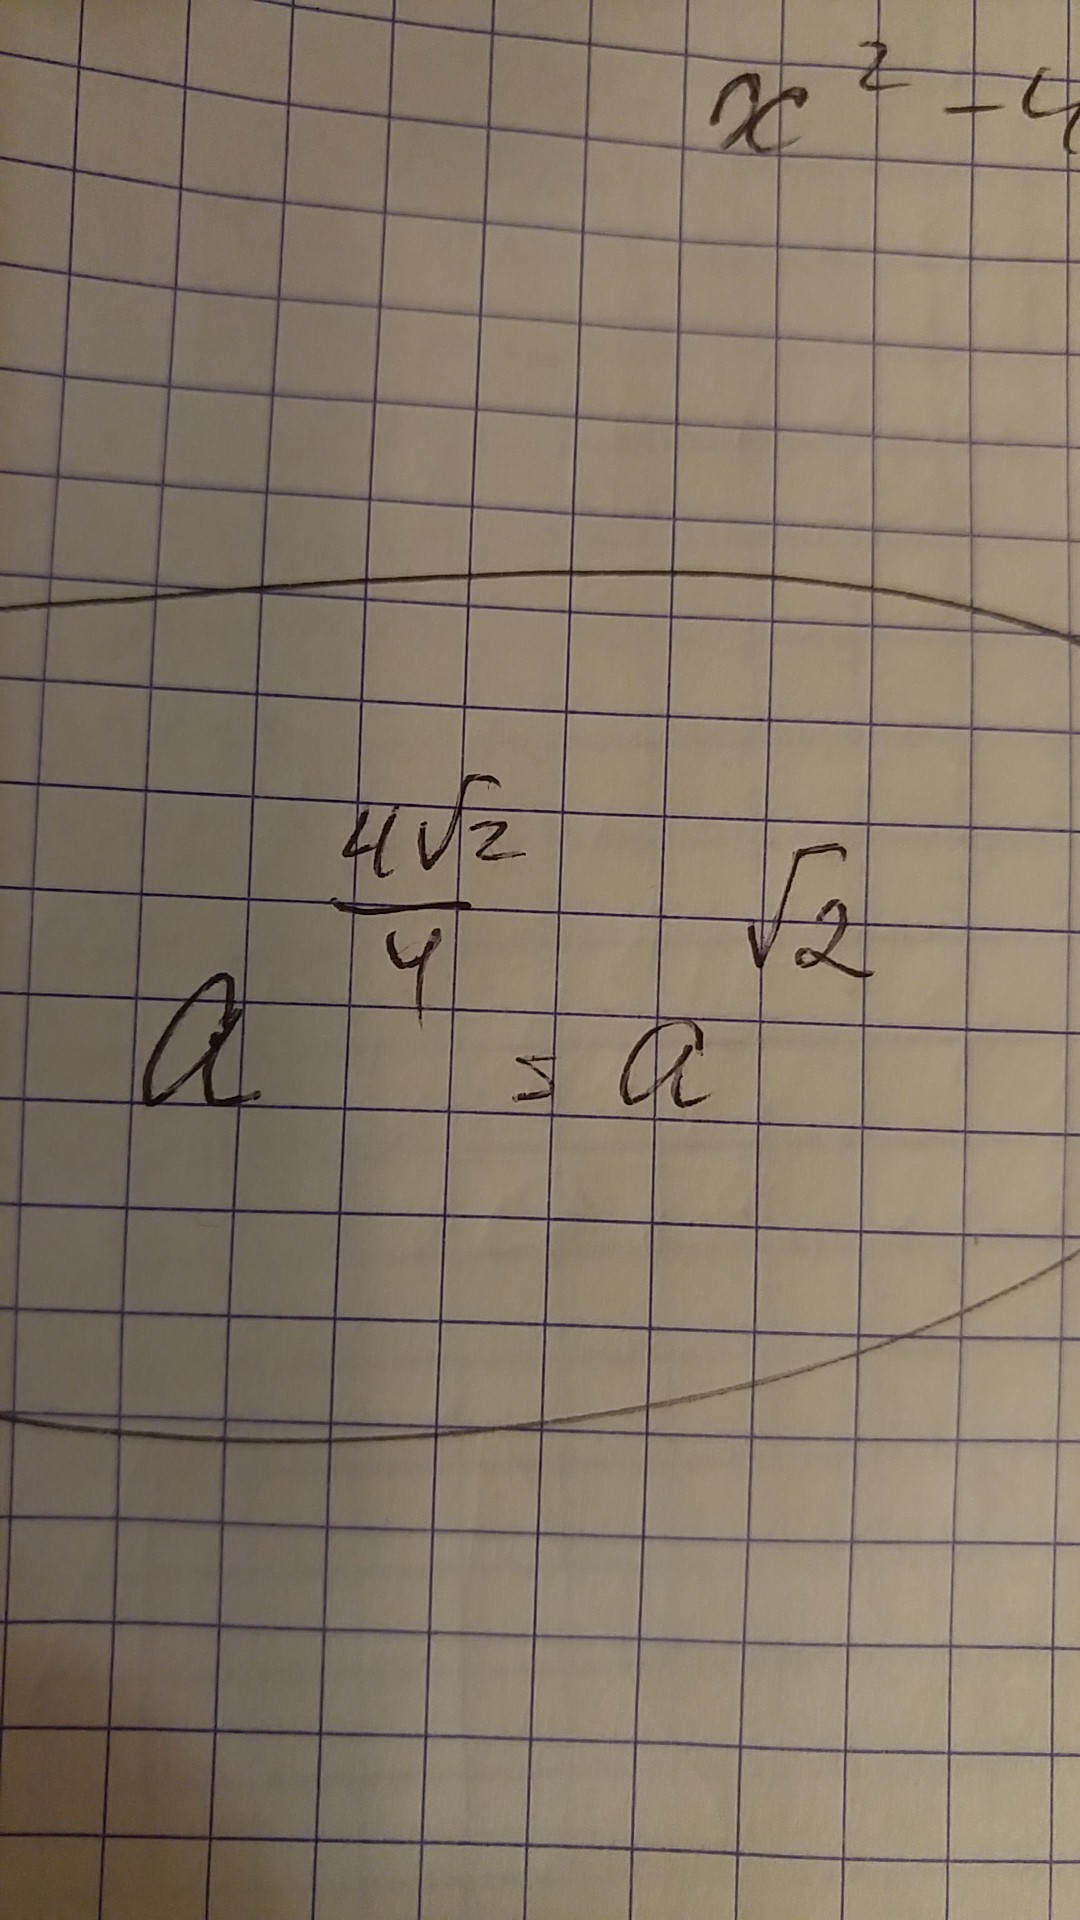 x² - 4
a^(4√2/4) = a^√2